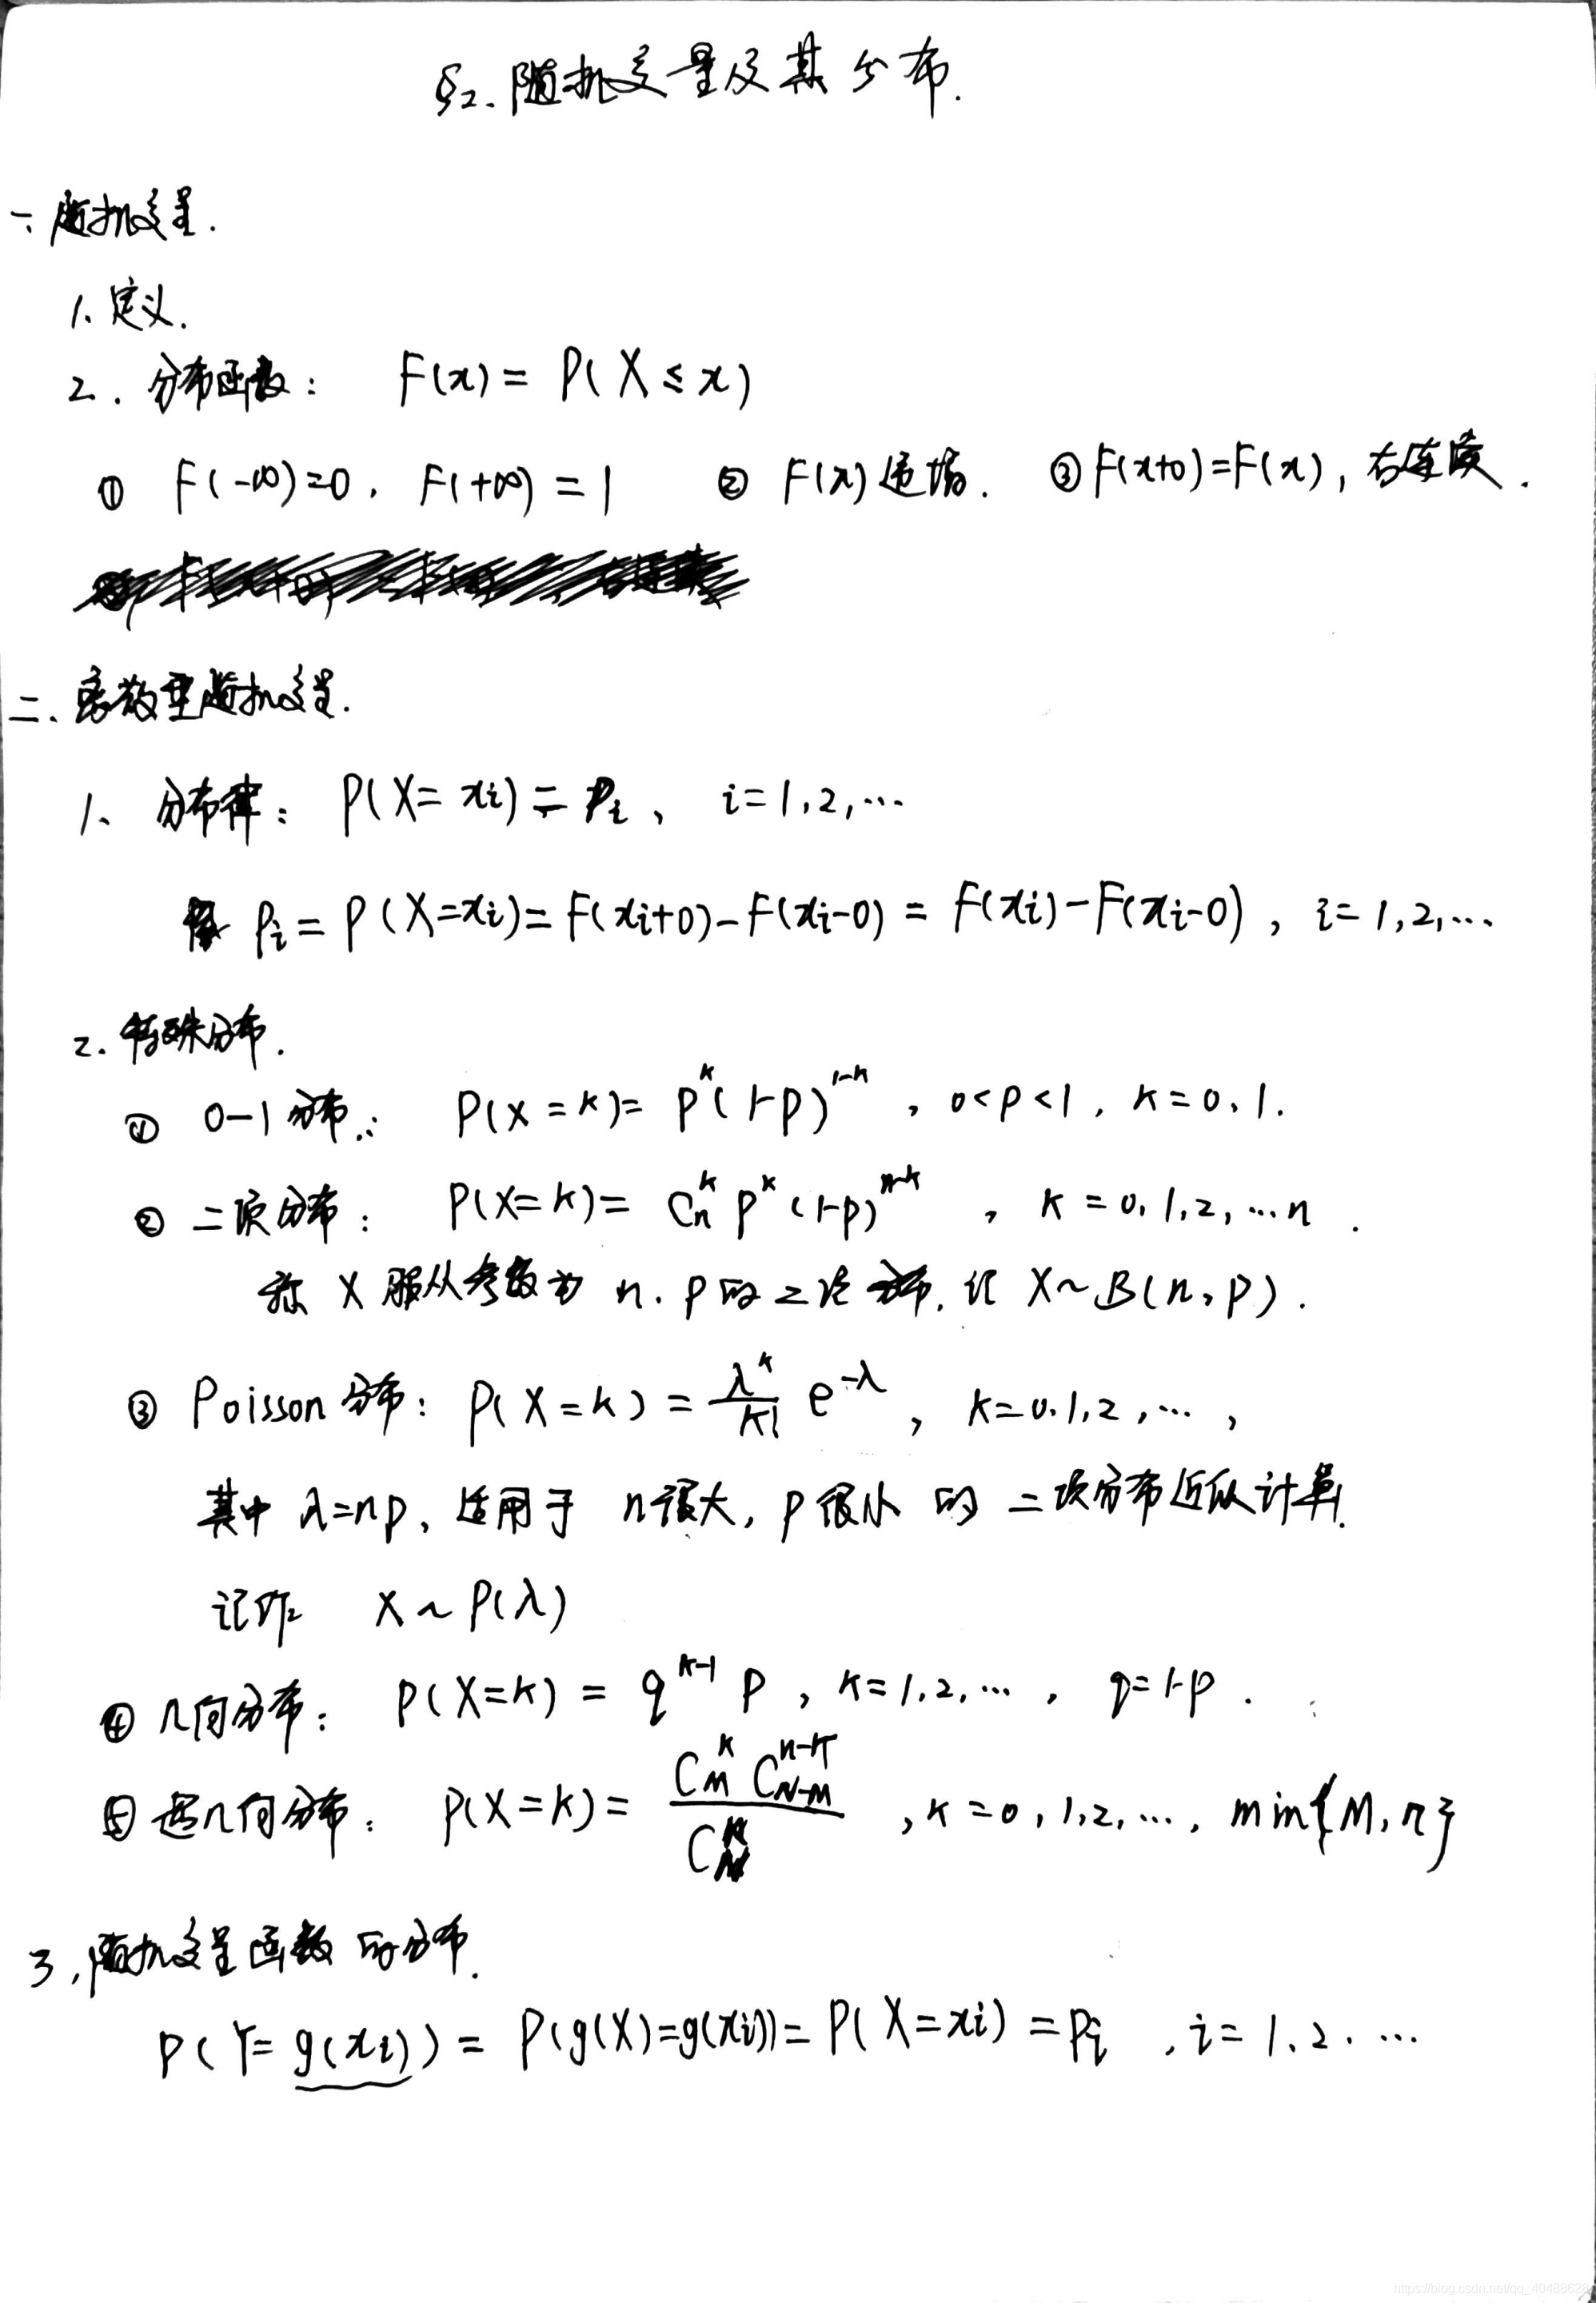 §2. 随机变量及其分布.
一. 随机变量.
1. 定义.
2. 分布函数: F(x) = P(X ≤ x)
① F(-∞)=0, F(+∞) = 1 ② F(x) 递增. ③ F(x+0)=F(x), 右连续.
二. 离散型随机变量.
1. 分布律: P(X = xi) = Pi, i=1,2,…
Pi = P(X=xi) = F(xi+0) - F(xi-0) = F(xi) - F(xi-0), i = 1,2,…
2. 特殊分布.
① 0-1分布: P(X=k) = p^k (1-p)^{1-k}, 0<p<1, k=0,1.
② 二项分布: P(X=k) = C_n^k p^k (1-p)^{n-k}, k = 0,1,2,…n.
称 X 服从参数为 n. p 的二项分布, 记 X~B(n,p).
③ Poisson 分布: P(X=k) = \frac{λ^k}{k!} e^{-λ}, k=0,1,2,…,
其中 λ=np, 适用于 n很大, p很小 的 二项分布近似计算.
记作 X ~ P(λ)
④ 几何分布: P(X=k) = q^{k-1} p, k=1,2,…, q=1-p.
⑤ 超几何分布: P(X=k) = \frac{C_M^k C_{N-M}^{n-k}}{C_N^n}, k=0,1,2,…, min{M,n}
3. 随机变量函数的分布.
P(Y=g(xi)) = P(g(X)=g(xi)) = P(X=xi) = Pi, i=1,2.…
https://blog.csdn.net/qq_40488628